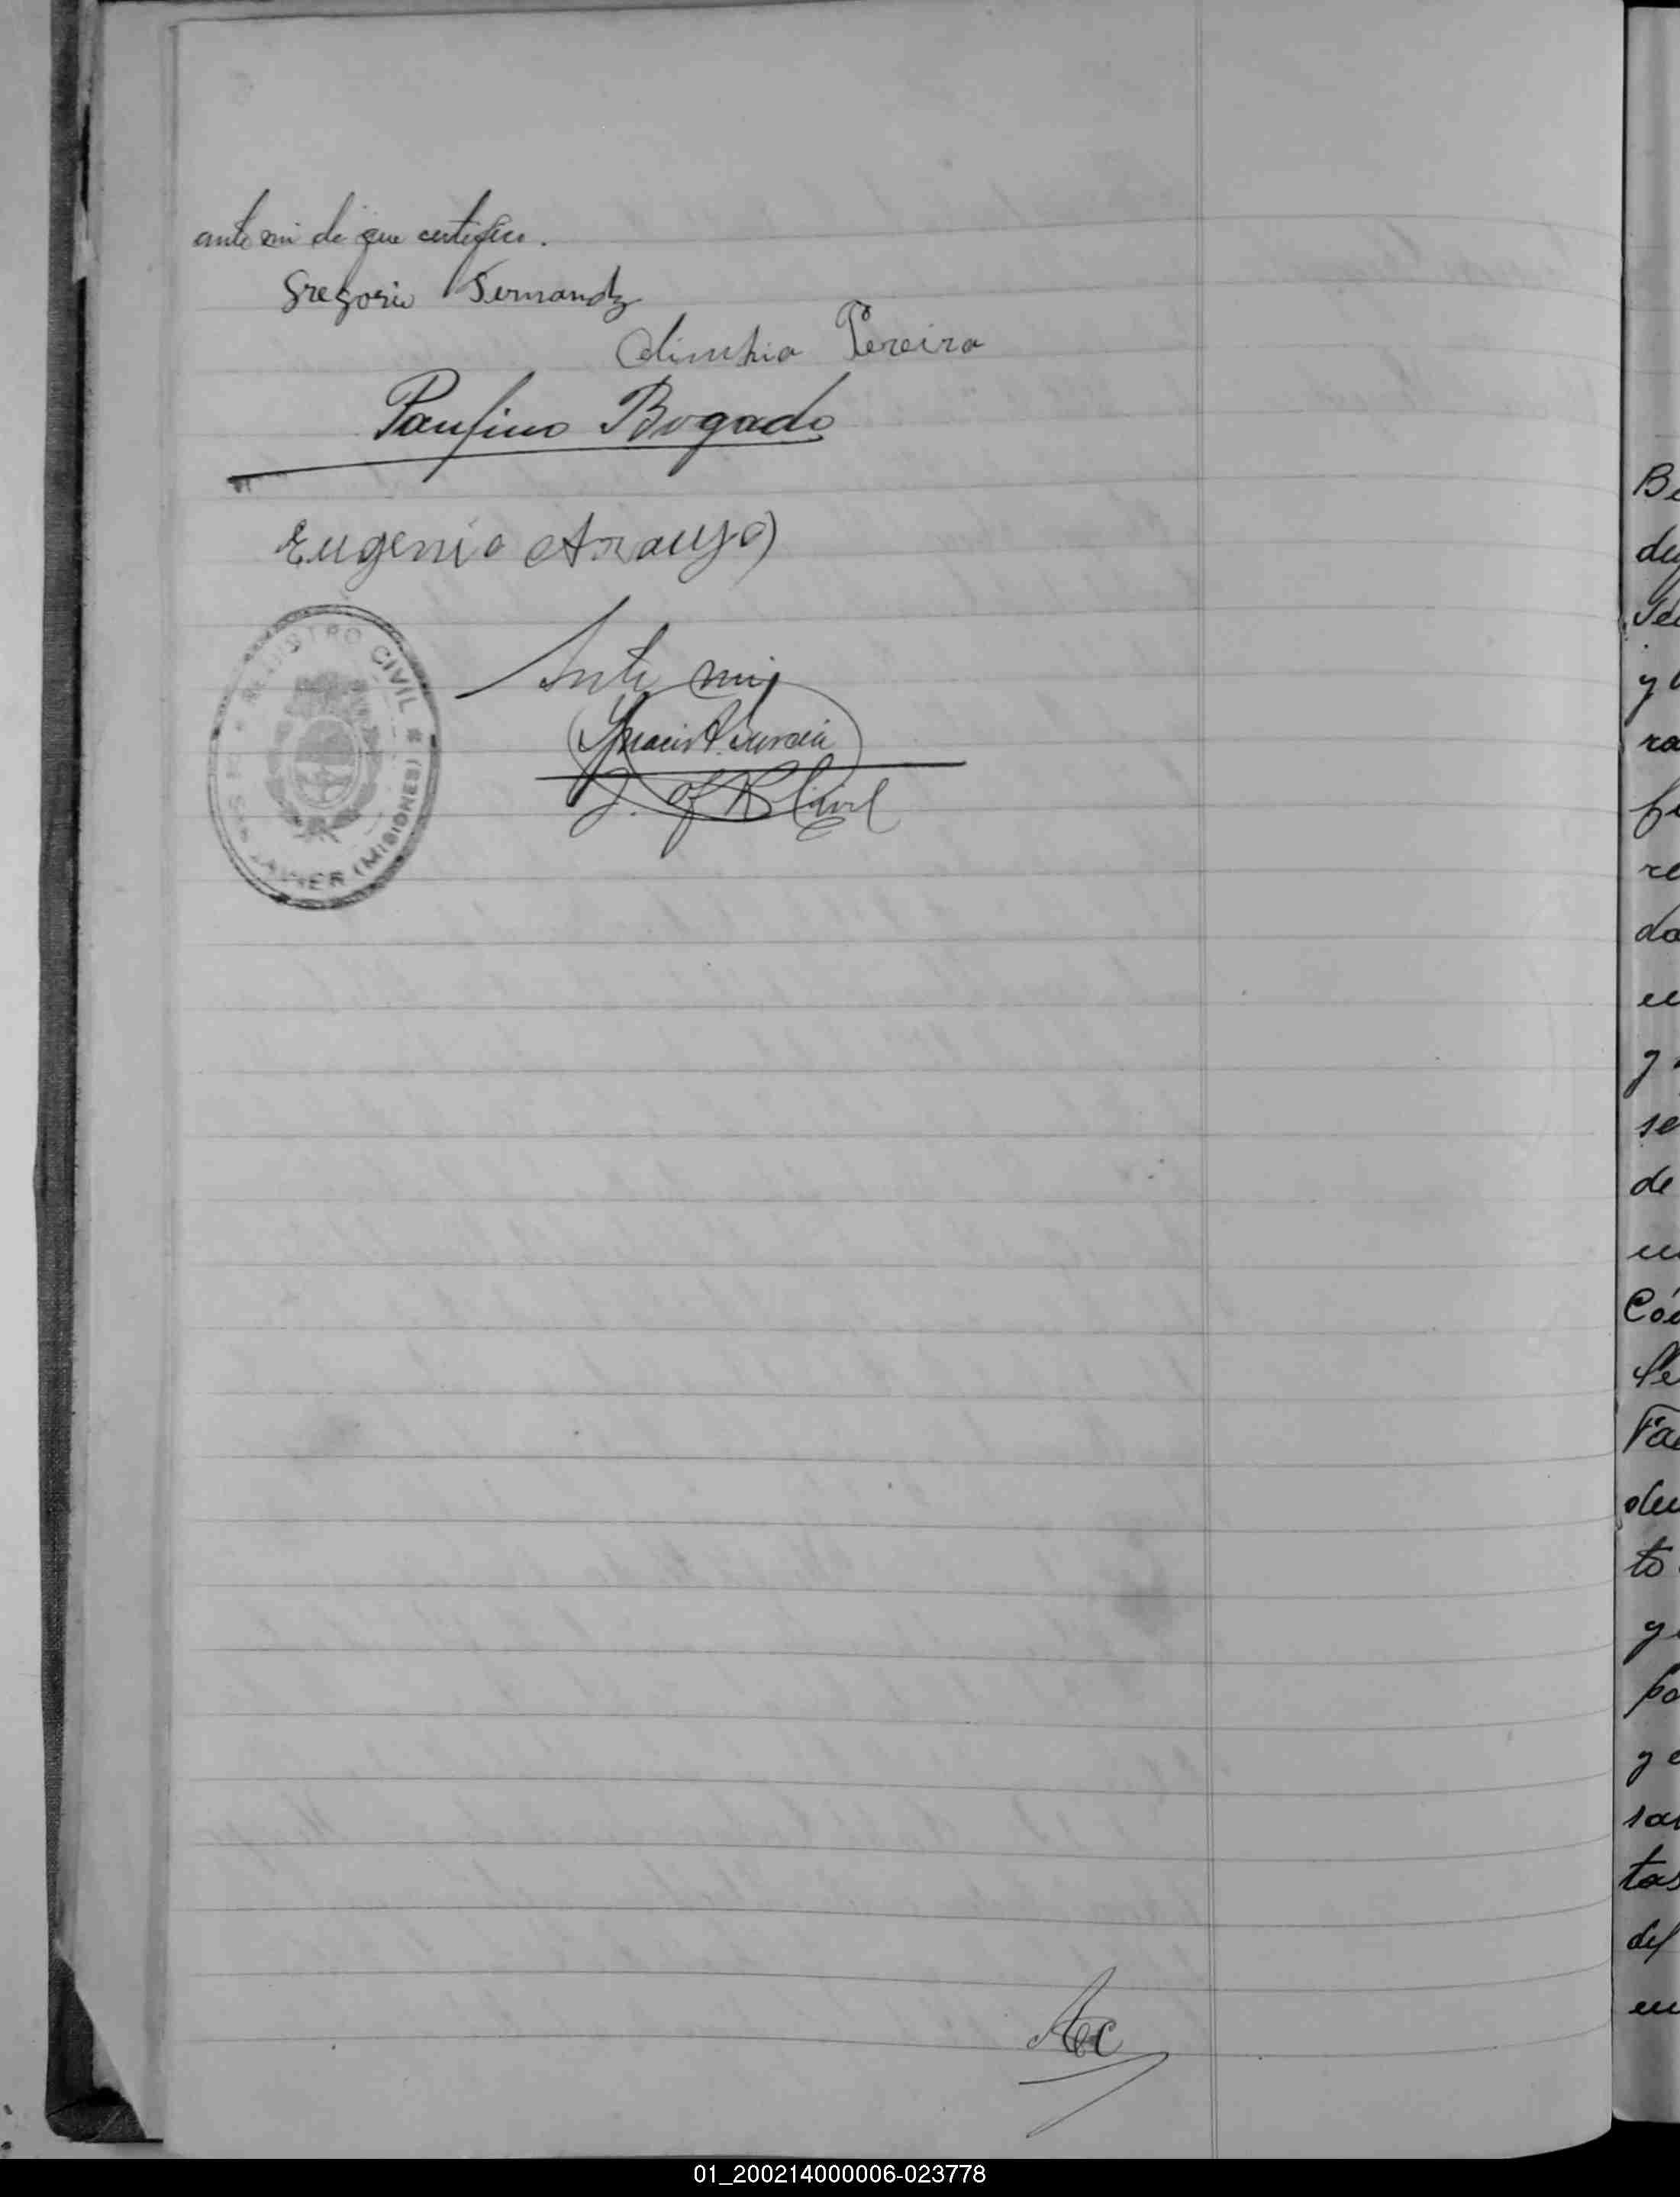 ante mi de que certifico.
Gregorio Fernandz
Olimpia Pereira
Paulino Bogado
Eugenio Araujo
REGISTRO CIVIL
SAN JAVIER (MISIONES)
Ante mi
J. Of R Civil
Be
de
y
ra
re
do
se
de
Có
to
y
tas
del
01_200214000006-023778